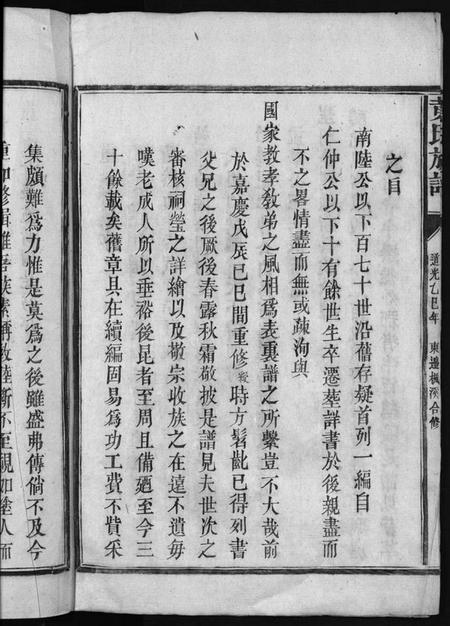 黄氏族譜
道光乙巳年 東邉楓溪合修
之目
南陸公以下百七十世沿舊存疑首列一編自
仁仲公以下十有餘世生卒遷塟詳書於後親盡而
不之畧情盡而無或疎洵與
國家教孝教弟之風相為表裏譜之所繫豈不大哉前
於嘉慶戊辰已巳間重修 時方髫齔已得列書
父兄之後厥後春露秋霜敬披是譜見夫世次之
審核祠塋之詳繪以及敬宗收族之在遠不遺每
嘆老成人所以垂裕後昆者至周且備廼至今三
十餘載矣舊章具在續編固易為功工費不貲采
集頗難為力惟是莫為之後雖盛弗傳倘不及今
重加修輯雖吾族素稱敦睦斷不至視如塗人而